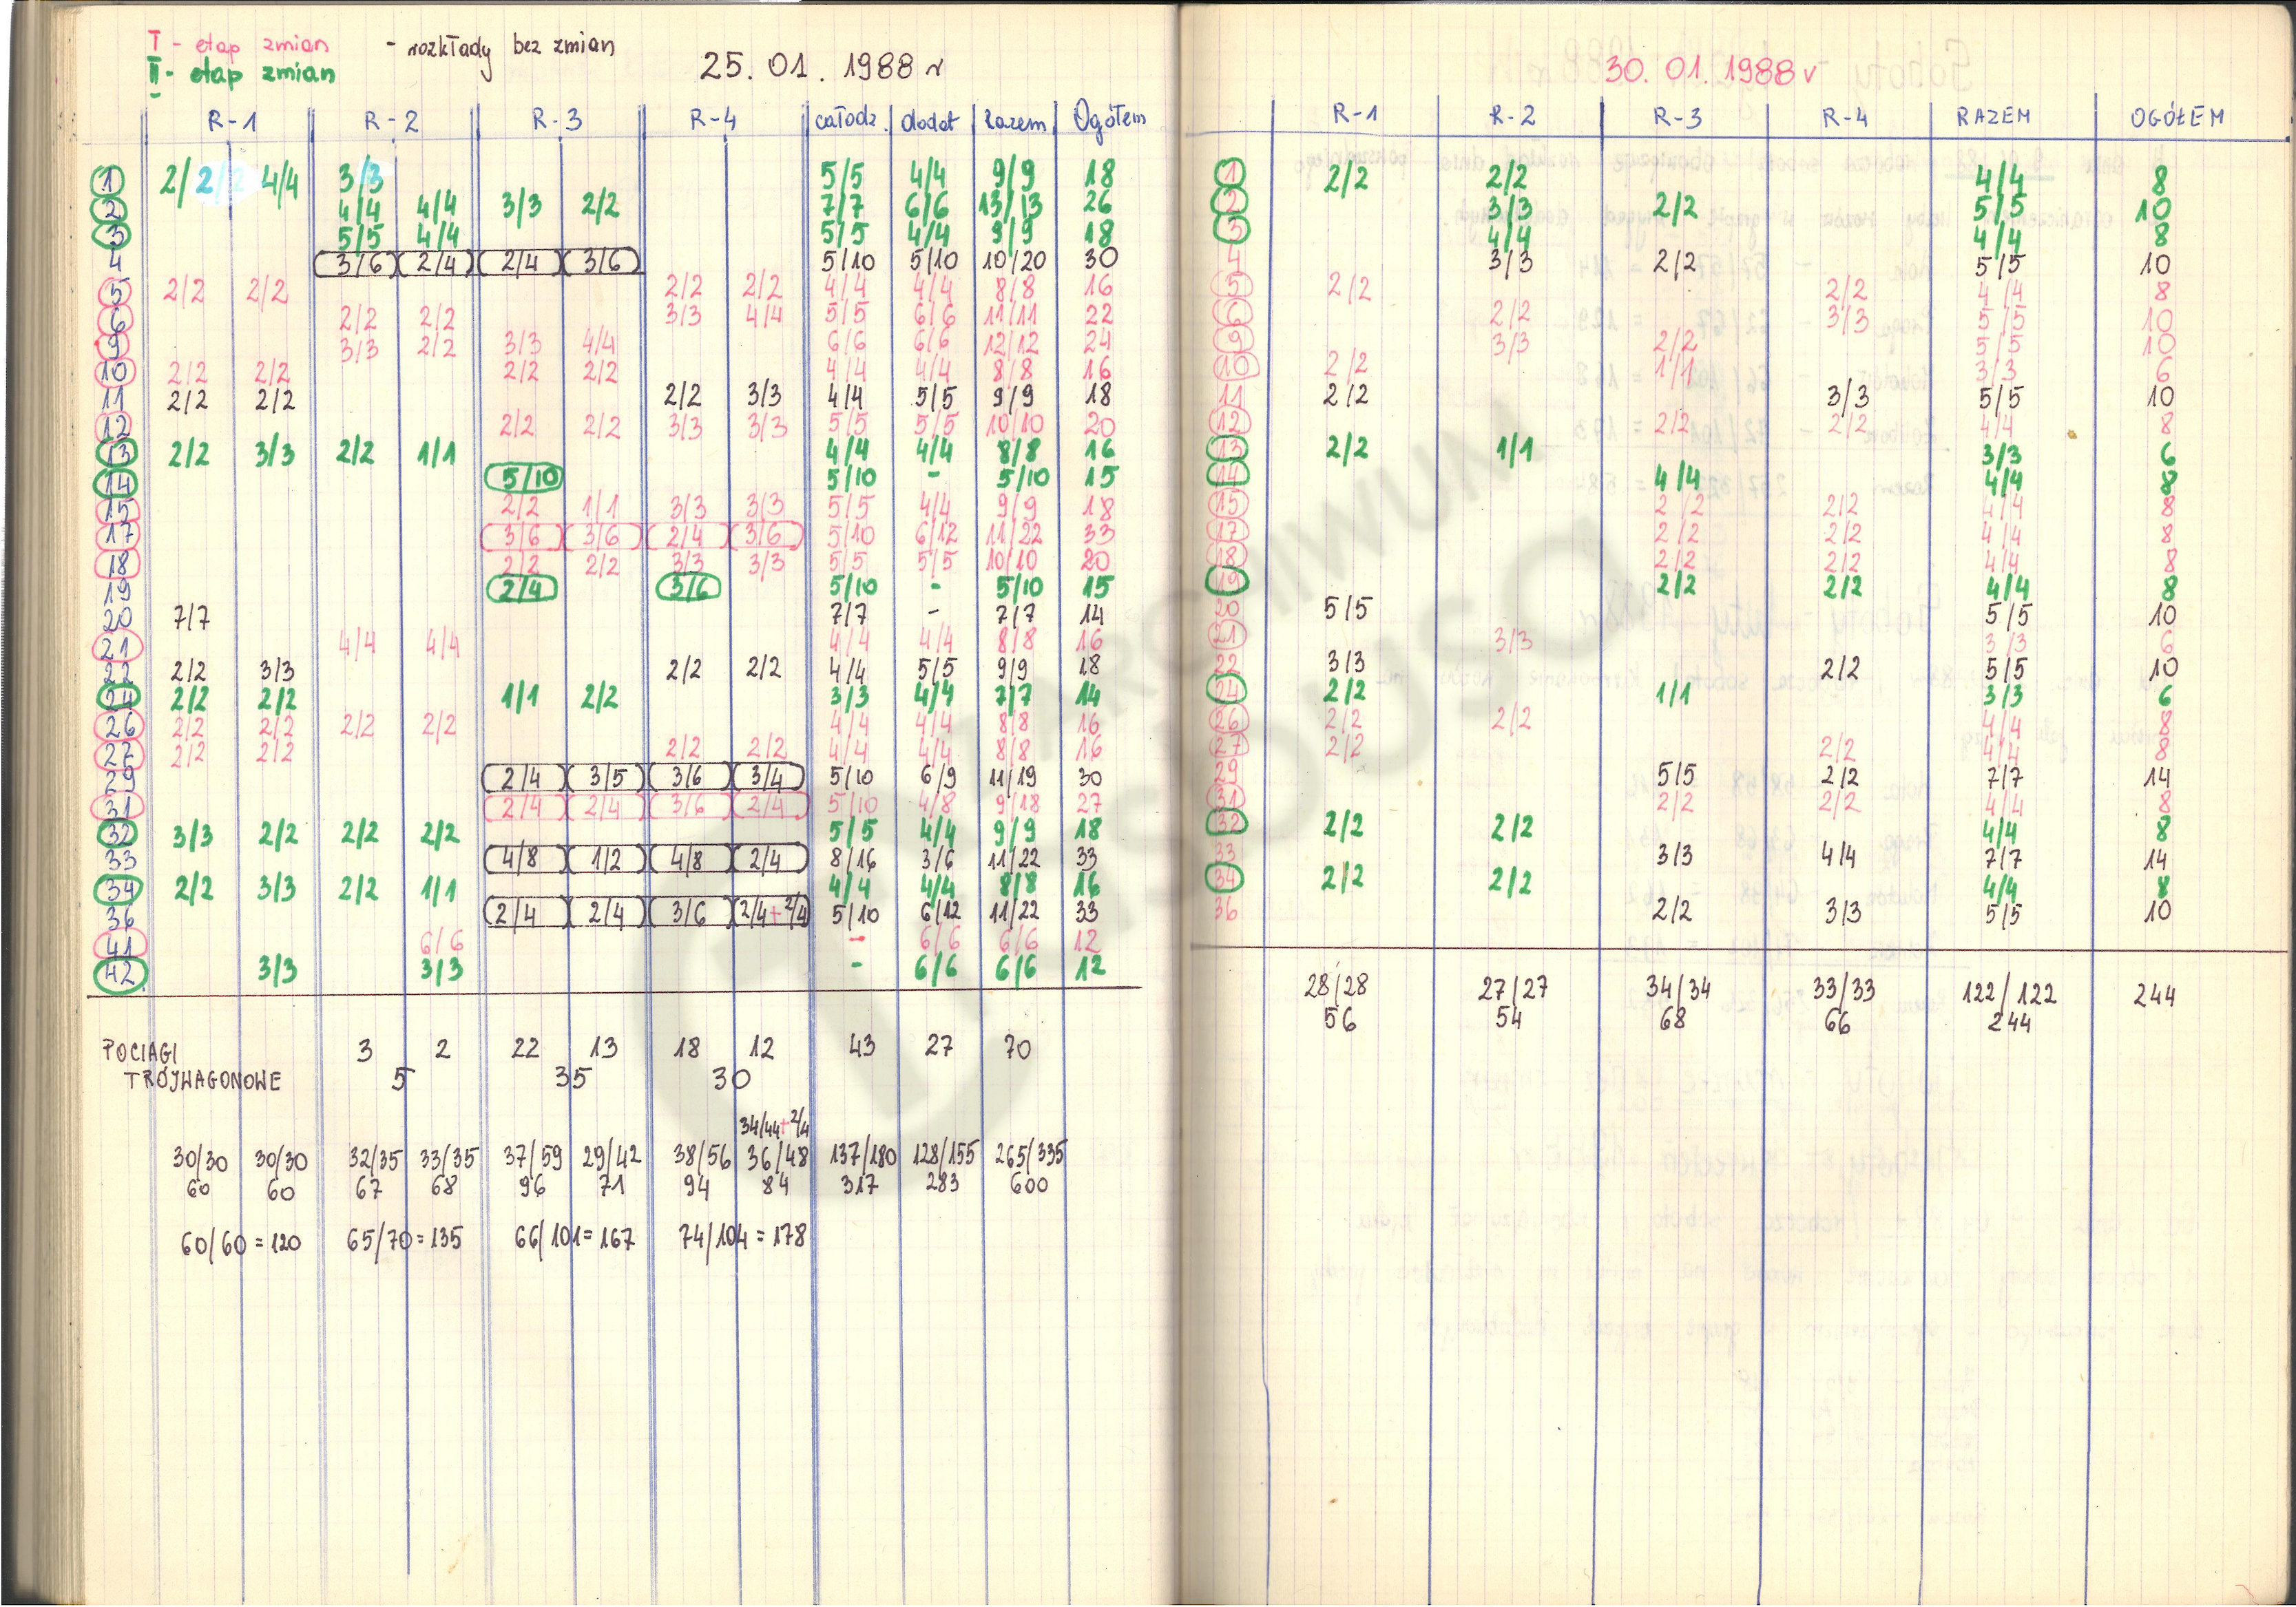 I - etap zmian - rozkłady bez zmian
II - etap zmian
25. 01. 1988 r
R-1 R-2 R-3 R-4 całodz. dodat Razem Ogółem
1 2/2 4/4 3/3 5/5 4/4 9/9 18
2 4/4 4/4 3/3 2/2 7/7 6/6 13/13 26
3 5/5 4/4 5/5 4/4 9/9 18
4 3/6 2/4 2/4 3/6 5/10 5/10 10/20 30
5 2/2 2/2 2/2 2/2 4/4 4/4 8/8 16
6 2/2 2/2 3/3 4/4 5/5 6/6 11/11 22
9 3/3 2/2 3/3 4/4 6/6 6/6 12/12 24
10 2/2 2/2 2/2 2/2 4/4 4/4 8/8 16
11 2/2 2/2 2/2 3/3 4/4 5/5 9/9 18
12 2/2 2/2 3/3 3/3 5/5 5/5 10/10 20
13 2/2 3/3 2/2 1/1 4/4 4/4 8/8 16
14 5/10 5/10 - 5/10 15
15 2/2 1/1 3/3 3/3 5/5 4/4 9/9 18
17 3/6 3/6 2/4 3/6 5/10 6/12 11/22 33
18 2/2 2/2 3/3 3/3 5/5 5/5 10/10 20
19 2/4 3/6 5/10 - 5/10 15
20 7/7 7/7 - 7/7 14
21 4/4 4/4 4/4 4/4 8/8 16
22 2/2 3/3 2/2 2/2 4/4 5/5 9/9 18
24 2/2 2/2 1/1 2/2 3/3 4/4 7/7 14
26 2/2 2/2 2/2 2/2 4/4 4/4 8/8 16
27 2/2 2/2 2/2 2/2 4/4 4/4 8/8 16
29 2/4 3/5 3/6 3/4 5/10 6/9 11/19 30
31 2/4 2/4 3/6 2/4 5/10 4/8 9/18 27
32 3/3 2/2 2/2 2/2 5/5 4/4 9/9 18
33 4/8 1/2 4/8 2/4 8/16 3/6 11/22 33
34 2/2 3/3 2/2 1/1 4/4 4/4 8/8 16
36 2/4 2/4 3/6 2/4+2/4 5/10 6/12 11/22 33
41 6/6 - 6/6 6/6 12
42 3/3 3/3 - 6/6 6/6 12
POCIAGI 3 2 22 13 18 12 43 27 70
TRÓJWAGONOWE 5 35 30
34/44+2/4
30/30 30/30 32/35 33/35 37/59 29/42 38/56 36/48 137/180 128/155 265/335
60 60 67 68 96 71 94 84 317 283 600
60/60=120 65/70=135 66/101=167 74/104=178
30. 01. 1988 r
R-1 R-2 R-3 R-4 RAZEM OGÓŁEM
1 2/2 2/2 4/4 8
2 3/3 2/2 5/5 10
3 4/4 4/4 8
4 3/3 2/2 5/5 10
5 2/2 2/2 4/4 8
6 2/2 3/3 5/5 10
9 3/3 2/2 5/5 10
10 2/2 1/1 3/3 6
11 2/2 3/3 5/5 10
12 2/2 2/2 4/4 8
13 2/2 1/1 3/3 6
14 4/4 4/4 8
15 2/2 2/2 4/4 8
17 2/2 2/2 4/4 8
18 2/2 2/2 4/4 8
19 2/2 2/2 4/4 8
20 5/5 5/5 10
21 3/3 3/3 6
22 3/3 2/2 5/5 10
24 2/2 1/1 3/3 6
26 2/2 2/2 4/4 8
27 2/2 2/2 4/4 8
29 5/5 2/2 7/7 14
31 2/2 2/2 4/4 8
32 2/2 2/2 4/4 8
33 3/3 4/4 7/7 14
34 2/2 2/2 4/4 8
36 2/2 3/3 5/5 10
28/28 27/27 34/34 33/33 122/122 244
56 54 68 66 244